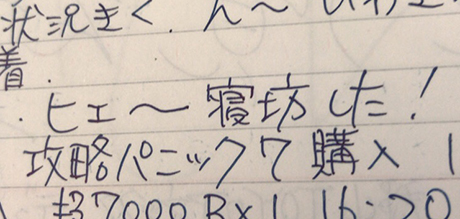 状況きく. ん〜
着.
・ヒェ〜寝坊した!
攻略パニック7 購入 1
7000 B×1 16:20